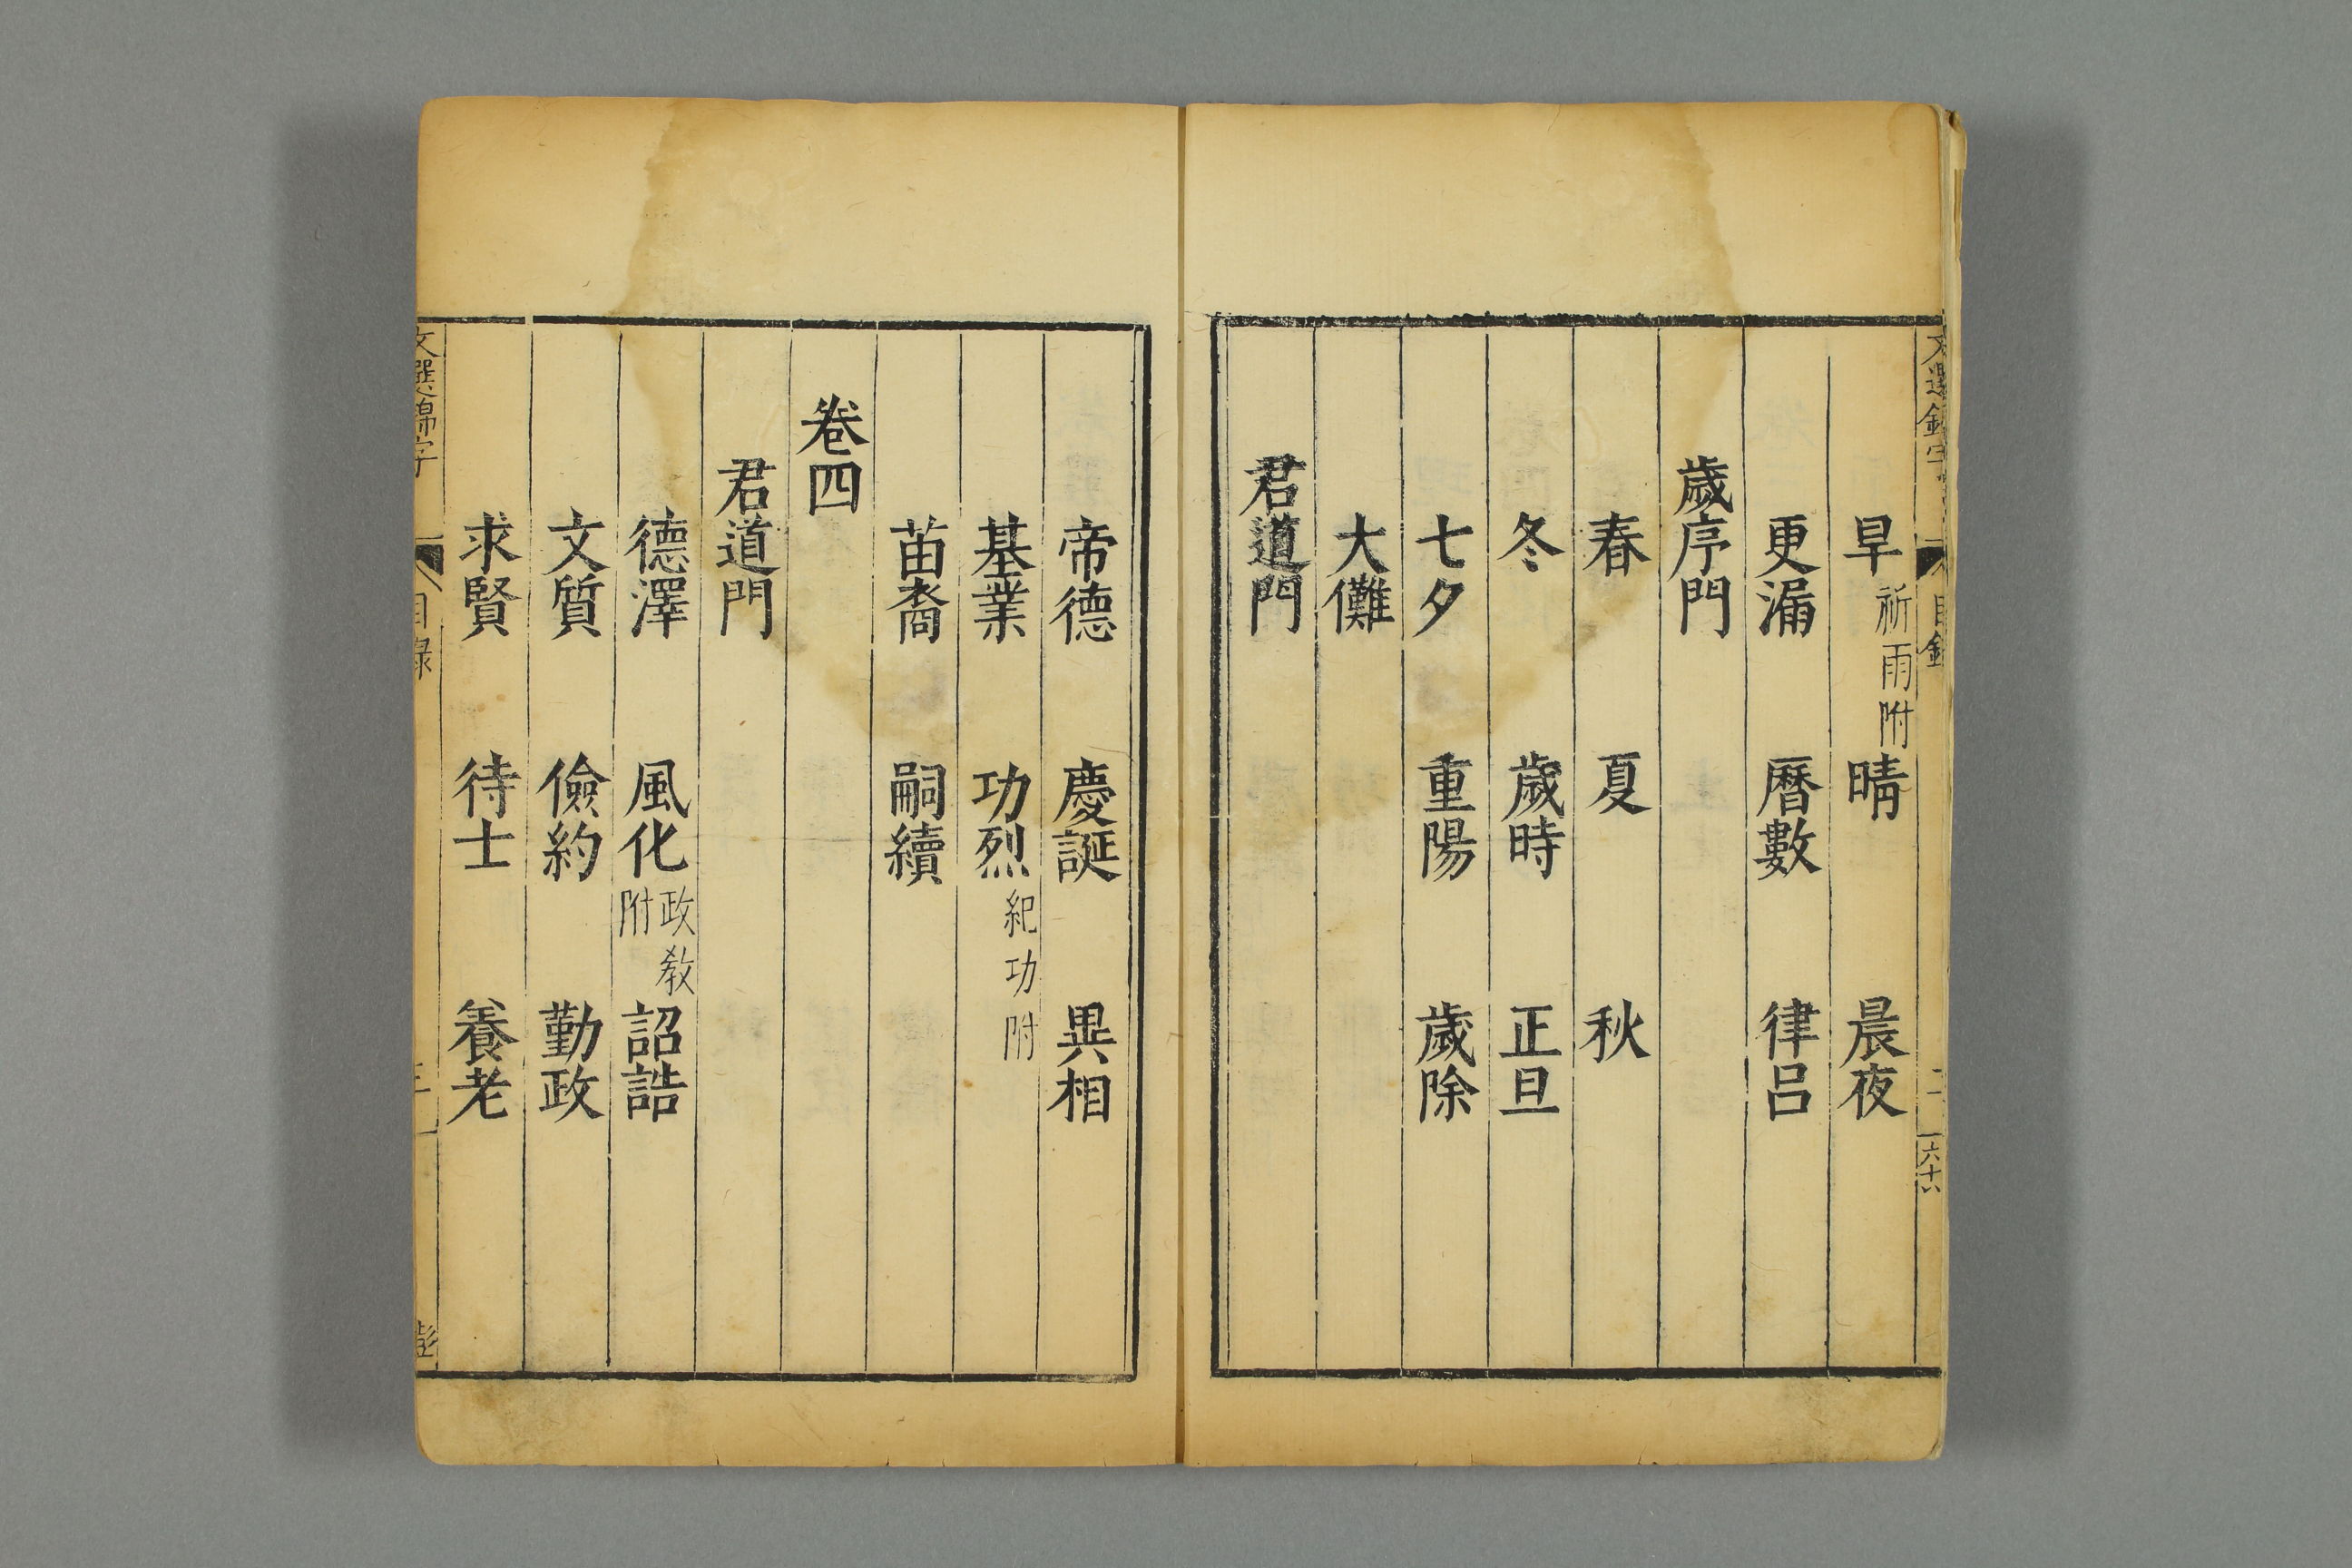 旱祈雨附 晴 晨夜
更漏 曆數 律呂
歲序門
春 夏 秋
冬 歲時 正旦
七夕 重陽 歲除
大儺
君道門
帝德 慶誕 異相
基業 功烈紀功附
苗裔 嗣續
卷四
君道門
德澤 風化政教附 詔誥
文質 儉約 勤政
求賢 待士 養老
文選錦字 目錄